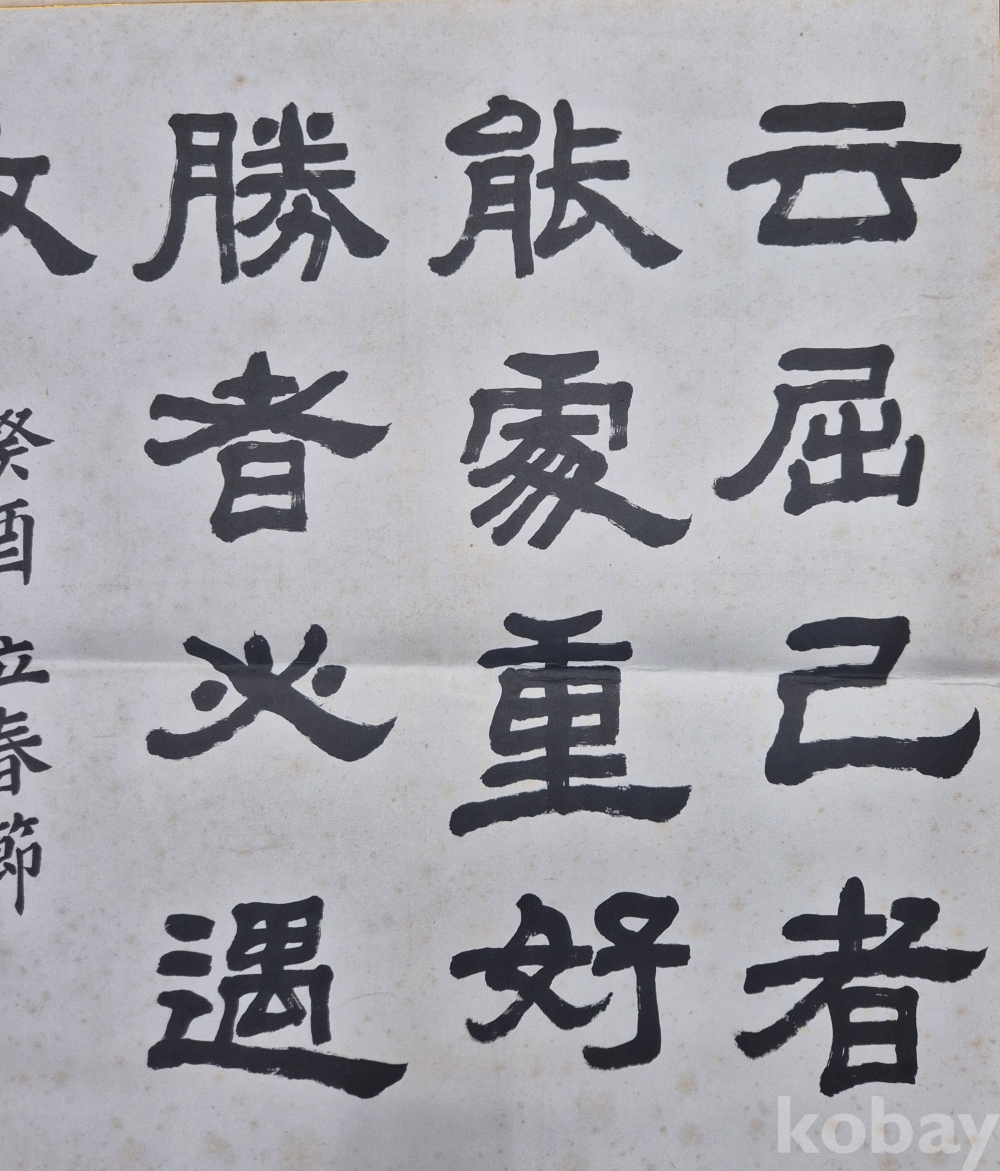 云屈己者
能處重好
勝者必遇
敵
癸酉立春節
kobay